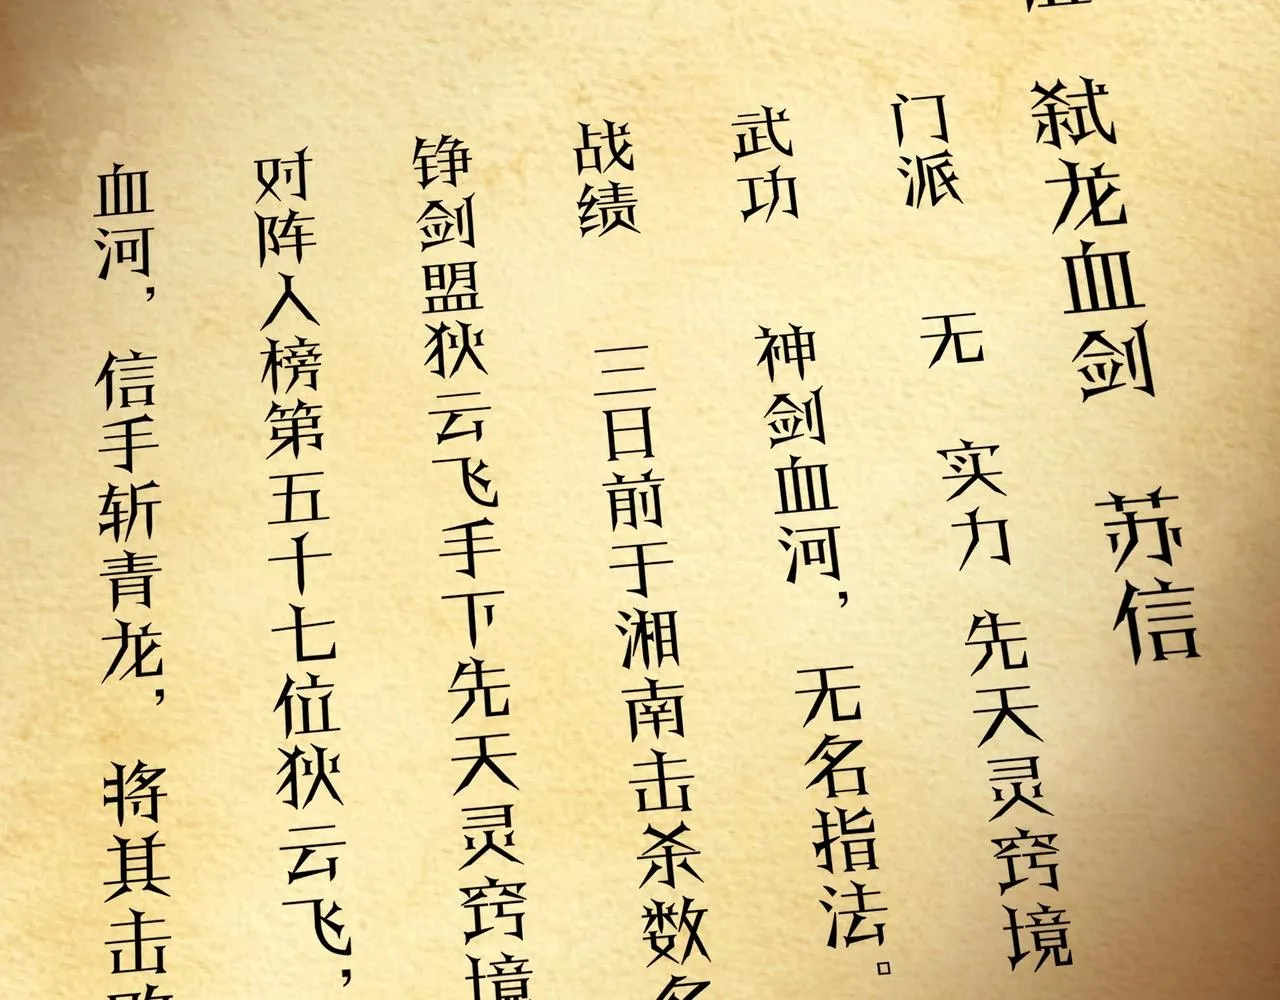 弑龙血剑 苏信
门派 无 实力 先天灵窍境
武功 神剑血河，无名指法。
战绩 三日前于湘南击杀数名
铮剑盟狄云飞手下先天灵窍境
对阵人榜第五十七位狄云飞，
血河，信手斩青龙，将其击